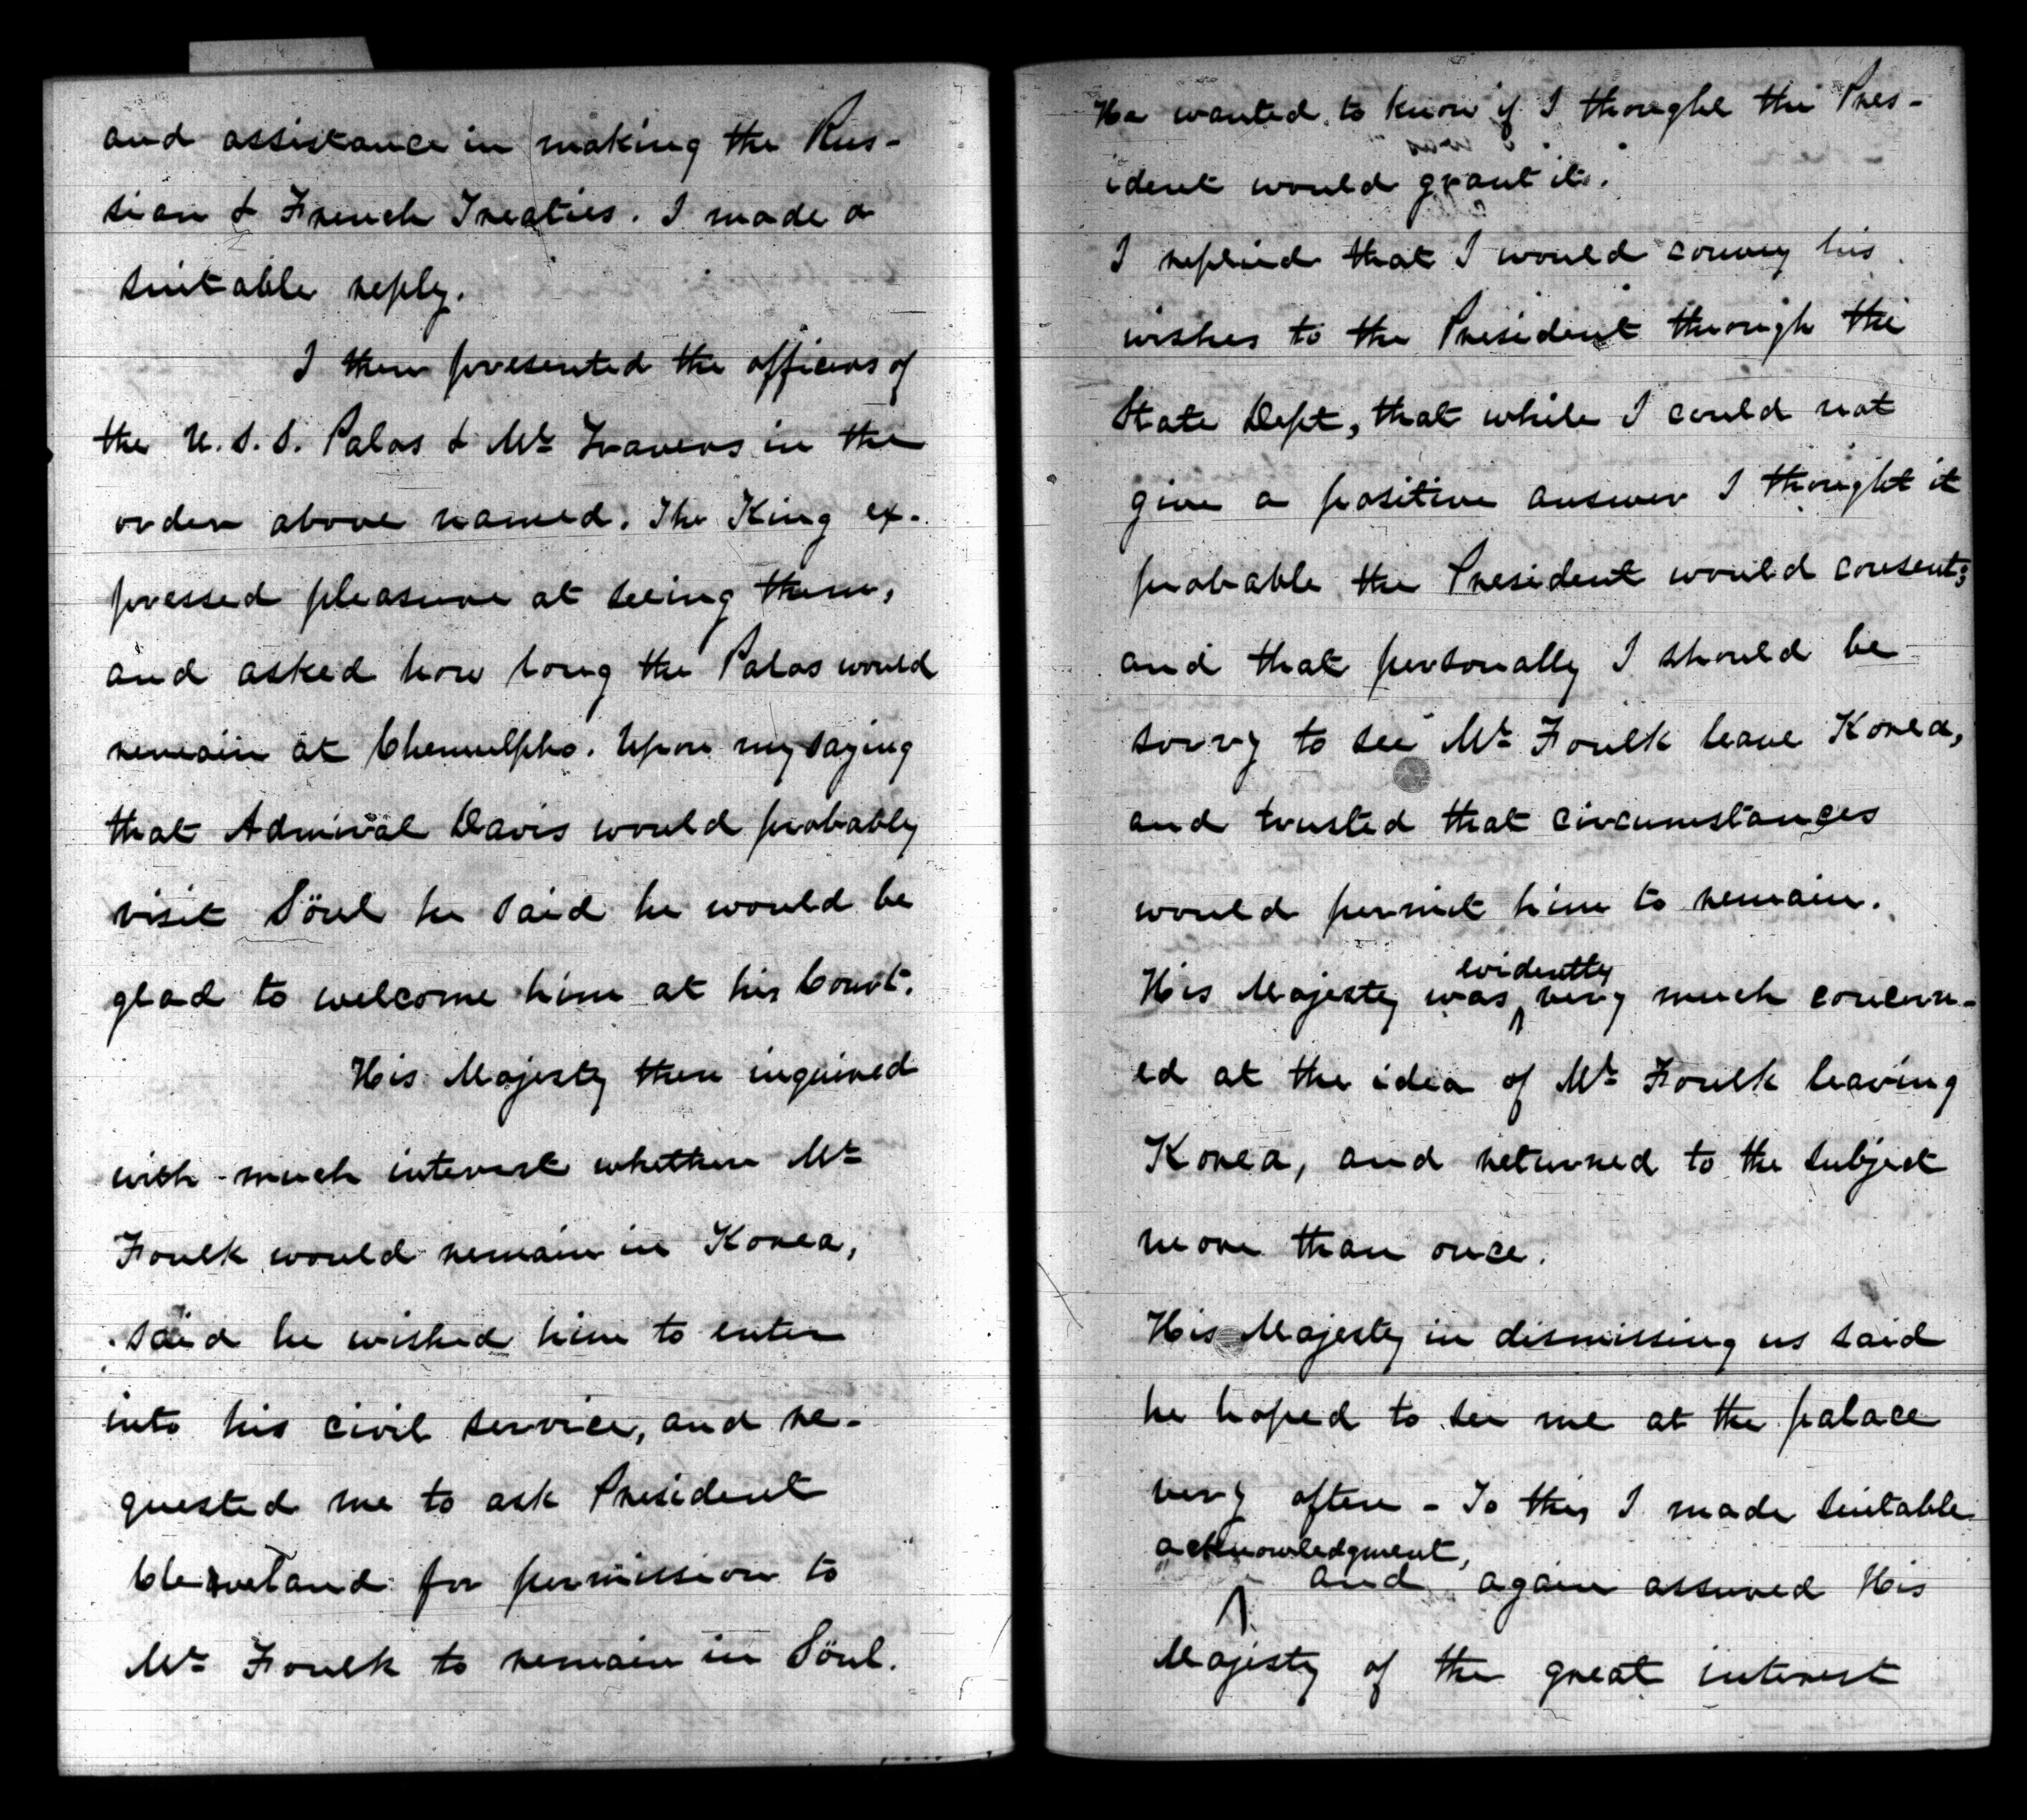 and assistance in making the Rus-
sian & French Treaties. I made a
suitable reply.
I then presented the officers of
the U.S.S. Palos & Mr Travers in the
order above named. The King ex-
pressed pleasure at seeing them,
and asked how long the Palos would
remain at Chemulpho. Upon my saying
that Admiral Davis would probably
visit Söul he said he would be
glad to welcome him at his Court.
His Majesty then inquired
with much interest whether Mr
Foulk would remain in Korea,
said he wished him to enter
into his civil service, and re-
quested me to ask President
Cleveland for permission to
Mr Foulk to remain in Söul.
He wanted to know if I thought the Pres-
ident would grant it.
I replied that I would convey his
wishes to the President through the
State Dept, that while I could not
give a positive answer I thought it
probable the President would consent;
and that personally I should be
sorry to see Mr Foulk leave Korea,
and trusted that circumstances
would permit him to remain.
evidently
His Majesty was ^ very much concern-
ed at the idea of Mr Foulk leaving
Korea, and returned to the subject
more than once.
His Majesty in dismissing us said
he hoped to see me at the palace
very often - To this I made suitable
acknowledgment,
^ and again assured His
Majesty of the great interest